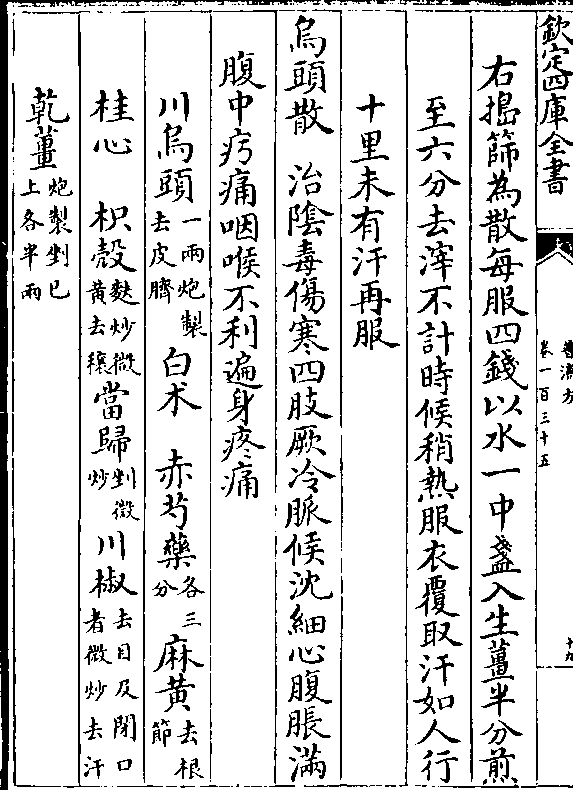 欽定四庫全書
普濟方
卷一百三十五
十九
右搗篩為散每服四錢以水一中盞入生薑半分煎
至六分去滓不計時候稍熱服衣覆取汗如人行
十里未有汗再服
烏頭散　治陰毒傷寒四肢厥冷脈候沈細心腹脹滿
腹中疞痛咽喉不利遍身疼痛
川烏頭一兩炮製去皮臍　白术　赤芍藥各三分　麻黃去根節
桂心　枳殼麩炒微黃去穰　當歸剉微炒　川椒去目及閉口者微炒去汗
乾薑炮製剉已上各半兩